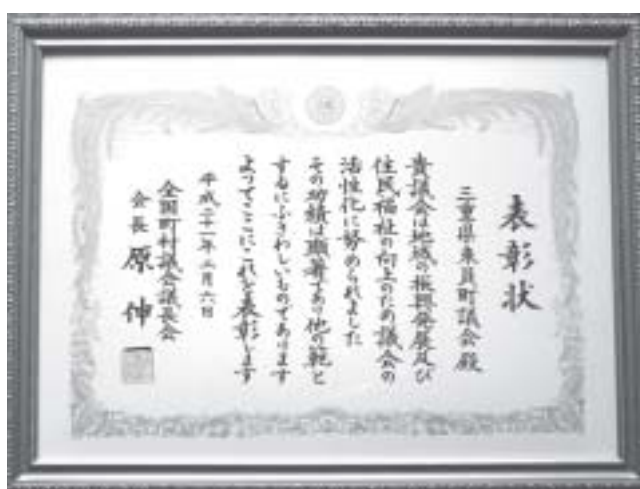 表彰状
三重県東員町議会殿
貴議会は地域の振興発展及び
住民福祉の向上のため議会の
活性化に努められました
その功績は顕著であり他の範と
するにふさわしいものであります
よってここにこれを表彰します
平成二十一年二月六日
全国町村議会議長会
会長 原 伸